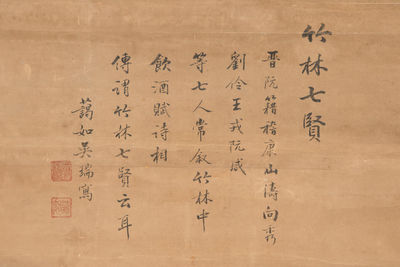 竹林七賢
晋阮籍嵇康山濤向秀
劉伶王戎阮咸
等七人常敘竹林中
飲酒賦詩相
傳謂竹林七賢云耳
藹如吴瑞寫